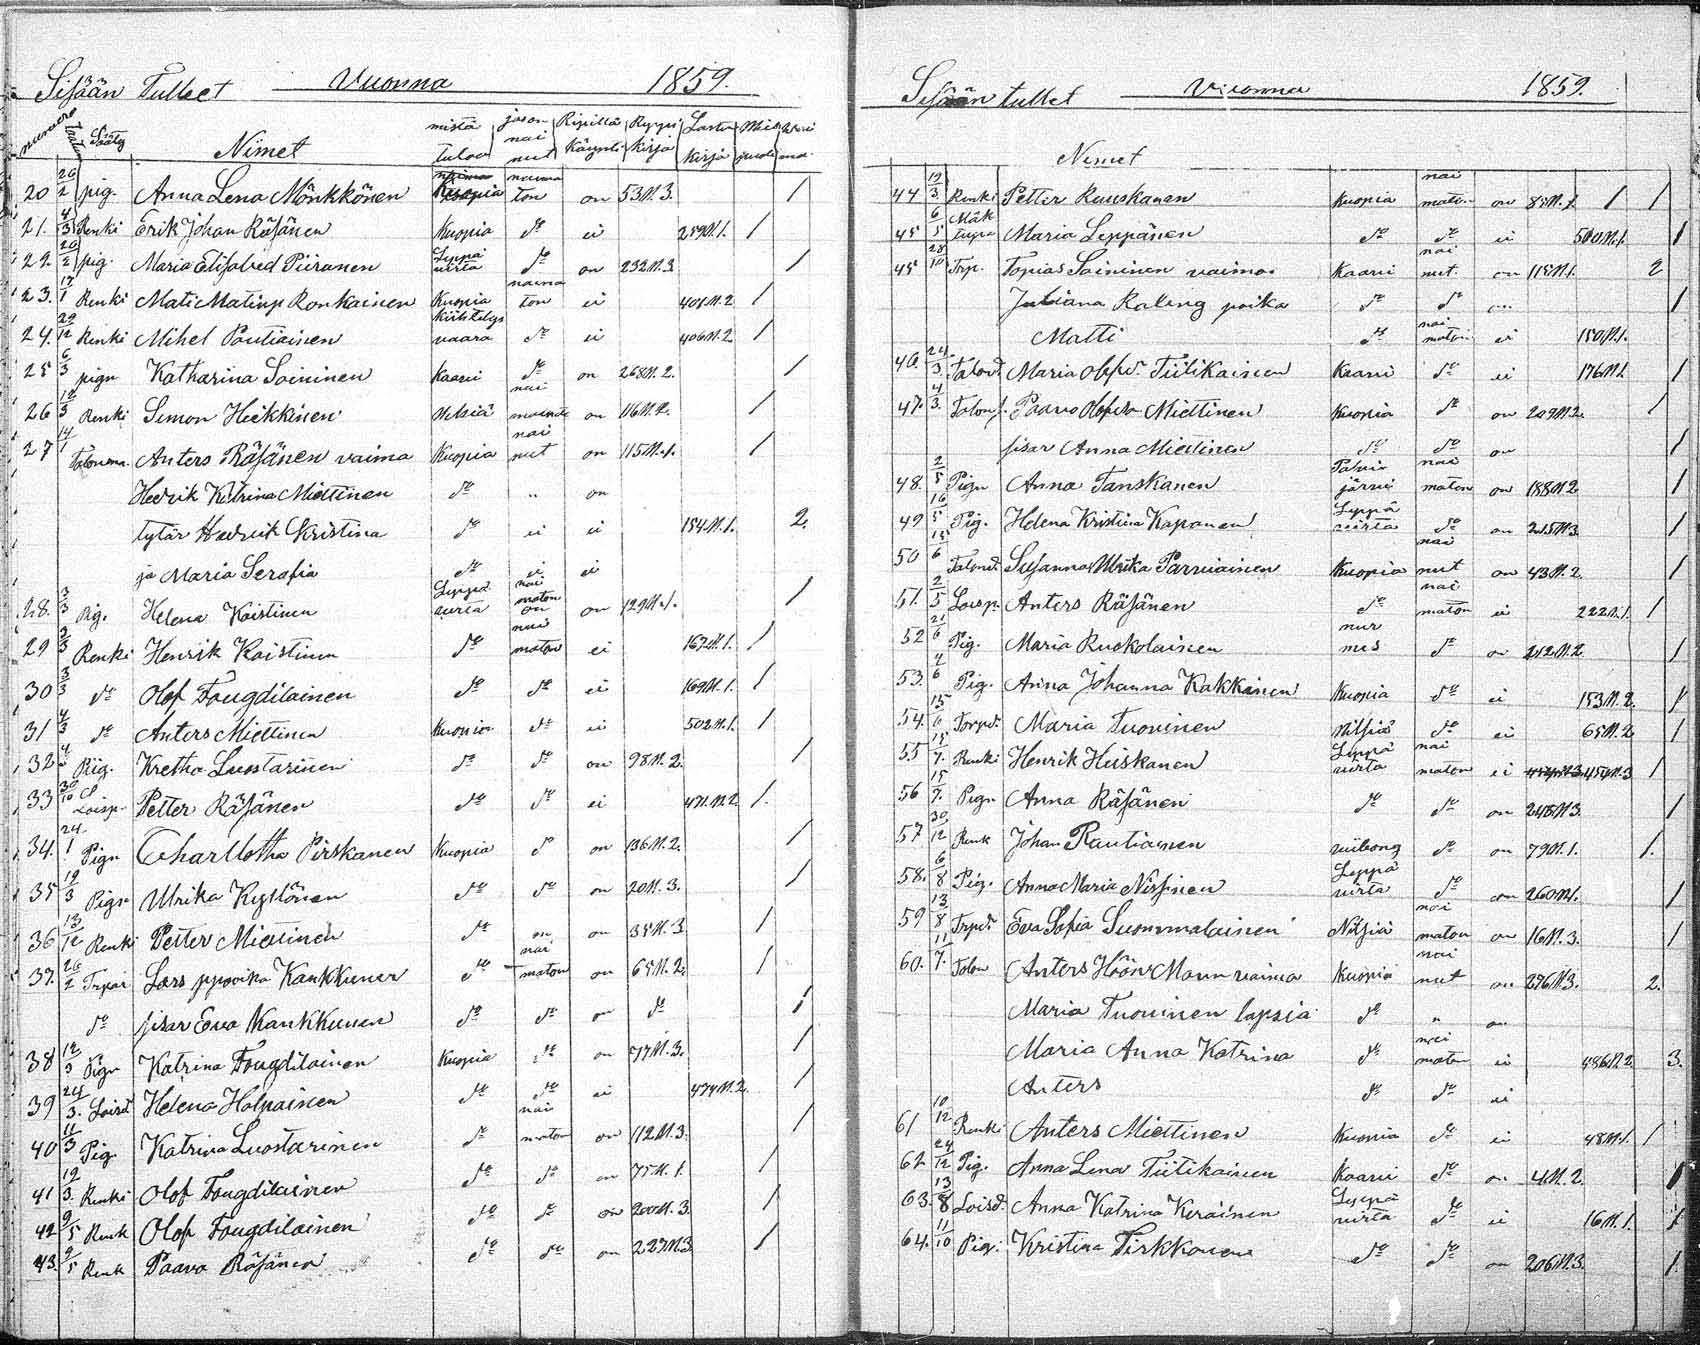 Sisään Tullet Vuonna 1859.
numero Sääty Nimet mistä tulov jos on nai nut Ripillä käynti Rippi kirja Lasten kirja
20 26/2 pig. Anna Lena Mönkkönen Kuopia naima ton on 53 N. 3. /
21. 4/3 Renki Erik Johan Räsänen Kuopia do ei 259 N. 1. /
22. 20/2 pig. Maria Elisabed Piiranen Leppä virta do on 232 N. 3. /
23. 17/1 Renki Mati Matinp Ronkainen Kuopia naima ton ei 401 N. 2 /
24. 29/12 Renki Mihel Pautiainen Kiihtelys vaara do ei 406 N. 2 /
25 6/3 pign Katharina Soininen Kaavi do on 268 N. 2. /
26 12/3 Renki Simon Heikkinen Nilsiä nai on 116 N. 2. /
27 14/1 Anters Räsänen vaimo Kuopia nai nut on 115 N. 1. /
Hedvik Katrina Miettinen do „ on
tytär Hedvik Kristina do ei ei 154 N. 1. 2.
ja Maria Serafia do ei ei
28. 3/3 Pig. Helena Koistinen Leppä virta nai maton on 129 N. 1. /
29 3/3 Renki Henrik Koistinen do nai maton ei 167 N. 1. /
30 3/3 do Olof Fougdilainen do do ei 169 N. 1. /
31 4/3 do Anters Miettinen Kuopio do ei 502 N. 1. /
32 Piig. Kretha Luostarinen do do on 98 N. 2. /
33 30/10 Loisp. Petter Räsänen do do ei 471 N. 2 /.
34. 24/1 Pign Charllotha Pirskanen Kuopia do on 136 N. 2. /
35 19/3 Pign Ulrika Kyllönen do do on 20 N. 3. /
36 13/12 Renki Petter Miettinen do on on 35 N. 3 /
37. 26/2 Lars ppoika Kaukkunen do nai maton on 65 N. 2. /
do sisar Eva Kaukkunen do do on do /
38 12/3 Pign Katrina Fougdilainen Kuopia do on 77 N. 3. /
39 24/3. Loisd Helena Holpainen do do ei 474 N. 2. /
40 11/3 Pig. Katrina Luostarinen do nai maton on 112 N. 3. /
41 19/3. Renki Olof Fougdilainen do do on 75 N. 1. /
42 9/5 Renk Olof Fougdilainen do do on 200 N. 3. /
43. 9/5 Renk Paavo Räsänen do do on 227 N. 3 /
Sisään tullet Vuonna 1859.
Nimet
44 19/3. Renki Petter Ruuskanen Kuopia nai maton on 85 N. 1. / /
45 6/5 Mäk tupa Maria Leppänen do do ei 500 N. 1. /
45 28/10 Trp. Topias Soininen vaimo Kaavi nai nut. on 115 N. 1. 2
Juliana Raling poika do do ... /
Matti do nai maton ei 150 N. 1.
46. 24/3. Talond. Maria Olofd. Tiitikainen Kaavi do ei 176 N. 1 /
47. 4/3. Paavo Olofson Miettinen Kuopia do on 209 N. 2. /
sisar Anna Miettinen do do on /
48. 2/5 Pign Anna Tanskanen Polvi järvi nai maton on 188 N. 2 /
49 16/5 Pig. Helena Kristina Kaponen Leppä virta do on 215 N. 3 /
50 15/6 Talond. Susanna Ulrika Parviainen Kuopia nai nut on 43 N. 2. /
51. 2/5 Loisp. Anters Räsänen do nai maton ei 222 N. 1. /
52 21/6 Pig. Maria Ruokolainen nur mes do on 212 N. 2. /
53. 2/6 Pig. Anna Johanna Kakkinen Kuopia do ei 153 N. 2. /
54. 15/6 Torpd. Maria Tuovinen Nilsiä do ei 65 N. 2 /
55 15/7. Renki Henrik Heiskanen Leppä virta nai maton ei 454 N. 3 /
56 15/7. Pign Anna Räsänen do do on 248 N. 3. /
57 30/12 Renk Johan Rautiainen viiborg do on 79 N. 1. /.
58. 6/8 Pig. Anna Maria Nissinen Leppä virta do on 260 N. 1. /
59 13/8 Trpd. Eva Sofia Suommalainen Nilsiä nai maton on 16 N. 3. /
60. 11/7. Talon Anters Höök Mann vaimo Kuopia nai nut on 276 N. 3. 2.
Maria Tuovinen lapsia do „ on
Maria Anna Katrina do nai maton ei 486 N. 2. 3.
Anters do do ei
61 10/12 Renki Anters Miettinen Kuopia do ei 48 N. 1. /
62 24/12 Pig. Anna Lena Tiitikainen Kaavi do on 4 N. 2. /
63. 13/8 Loisd. Anna Katrina Keräinen Leppä virta do ei 16 N. 1. /
64. 11/10 Pig. Kristina Tirkkonen do do on 206 N. 3. /